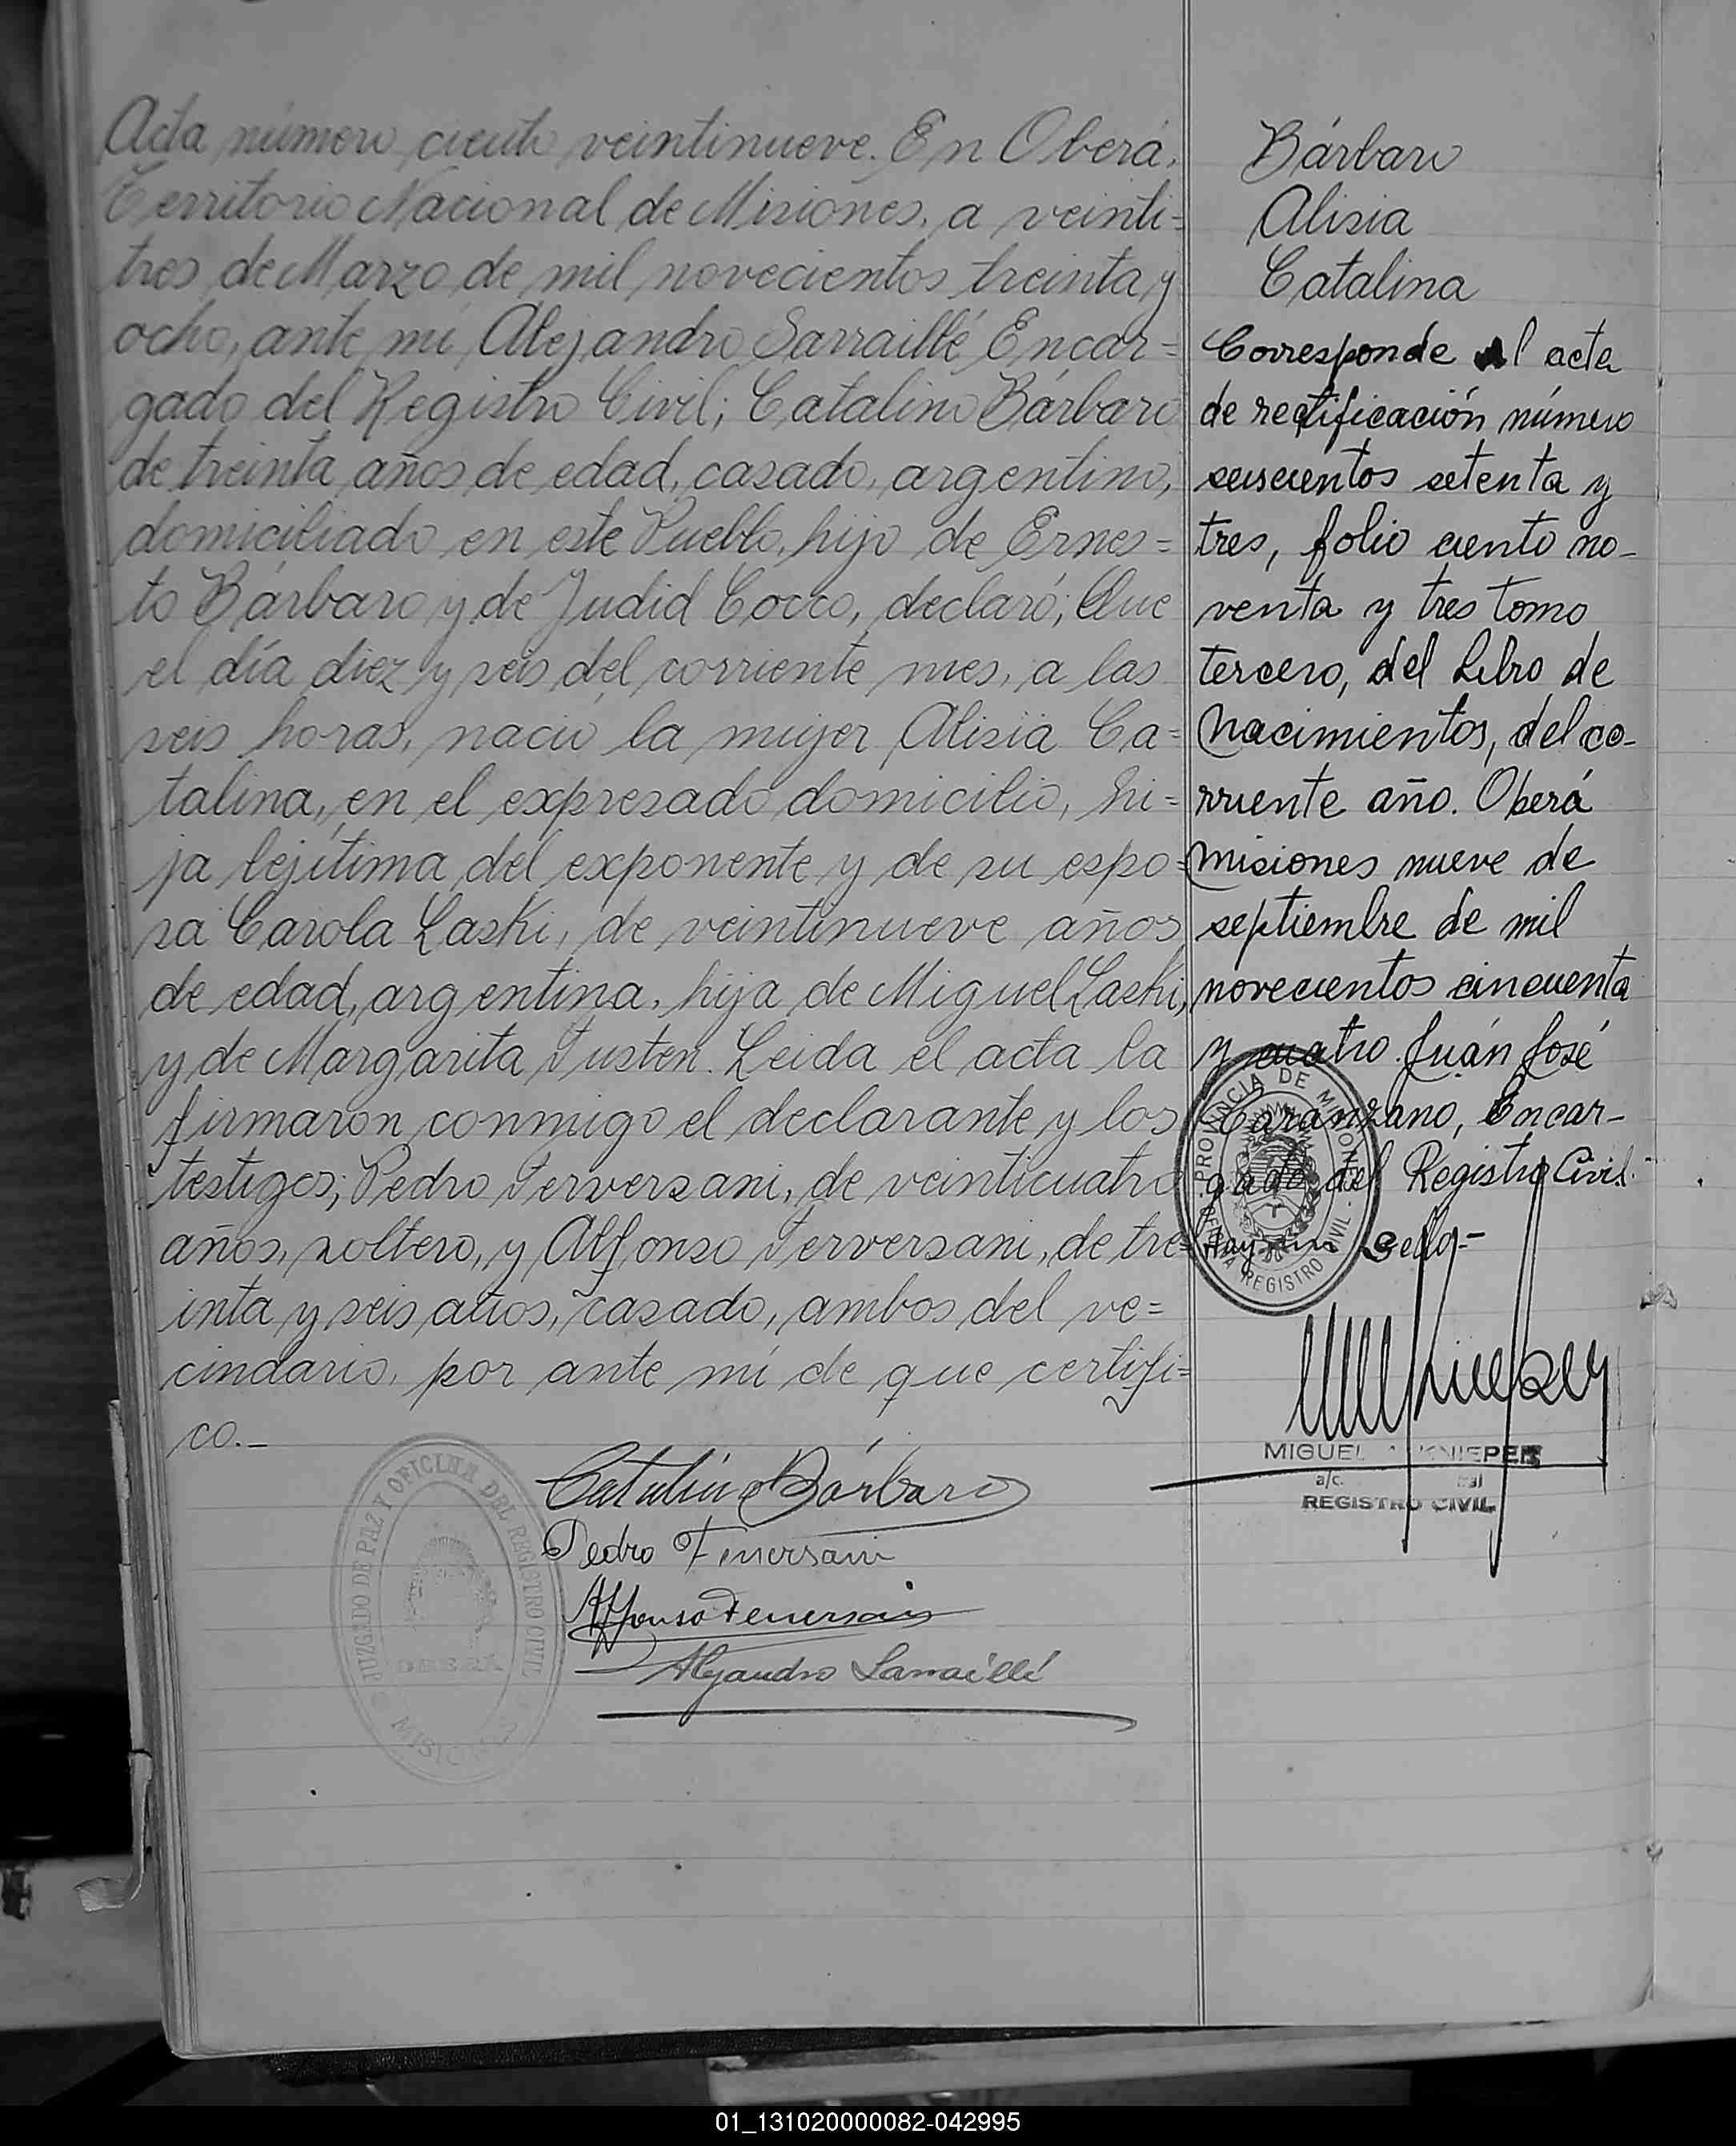 Acta número ciento veintinueve. En Oberá,
Territorio Nacional de Misiones, a veinti=
tres de Marzo de mil novecientos treinta y
ocho, ante mí Alejandro Sarraillé Encar=
gado del Registro Civil; Catalino Bárbaro
de treinta años de edad, casado, argentino,
domiciliado en este Pueblo, hijo de Ernes=
to Bárbaro y de Judid Cocco, declaró; Que
el día diez y seis del corriente mes, a las
seis horas, nació la mujer Alisia Ca=
talina, en el expresado domicilio, hi=
ja lejítima del exponente y de su espo=
sa Carola Laski, de veintinueve años
de edad, argentina, hija de Miguel Laski,
y de Margarita Tusten. Leida el acta la
firmaron conmigo el declarante y los
testigos; Pedro Ferversani, de veinticuatro
años, soltero, y Alfonso Ferversani, de tre=
inta y seis años, casado, ambos del ve=
cindario, por ante mí de que certifi=
co._
Catalino Bárbaro
Pedro
Alfonso
Alejandro Sarraillé
JUZGADO DE PAZ Y OFICINA DEL REGISTRO CIVIL
OBERA
MISIONES
Bárbaro
Alisia
Catalina
Corresponde al acta
de rectificación número
seiscientos setenta y
tres, folio ciento no-
venta y tres tomo
tercero, del Libro de
Nacimientos, del co-
rriente año. Oberá
Misiones nueve de
septiembre de mil
novecientos cincuenta
y cuatro. Juán José
Caranzano, Encar-
gado del Registro Civil.-
Hay un Sello=
PROVINCIA DE MISIONES
REGISTRO CIVIL
MIGUEL KNIEPER
a/c.
REGISTRO CIVIL
01_131020000082-042995